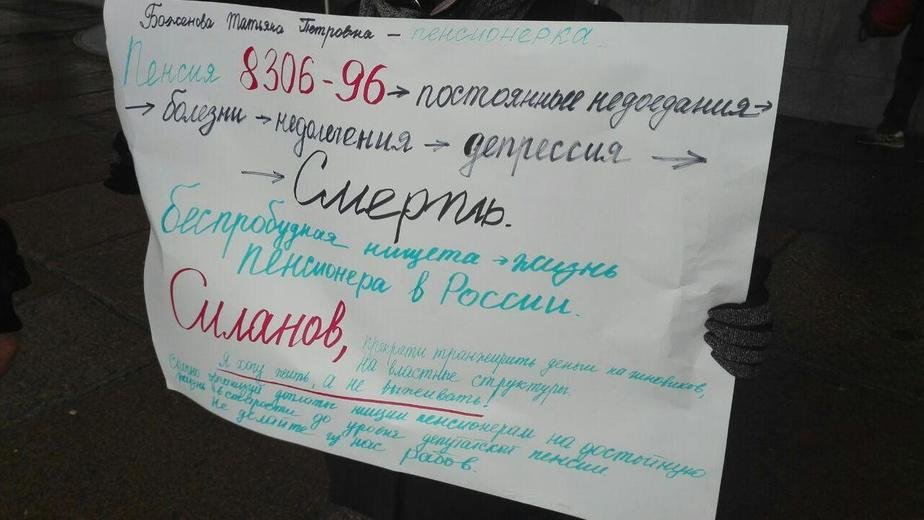 Баженова Татьяна Петровна – пенсионерка
Пенсия 8306-96 → постоянные недоедания →
→ болезни → недолечения → депрессия →
→ Смерть.
беспробудная нищета → жизнь
пенсионера в России.
Силанов,
прекрати транжирить деньги на чиновиков,
на властные структуры.
Я хочу жить, а не выживать!
доплаты нищим пенсионерам на достойную
жизнь в старости до уровня депутатской пенсии.
Не делайте из нас рабов.